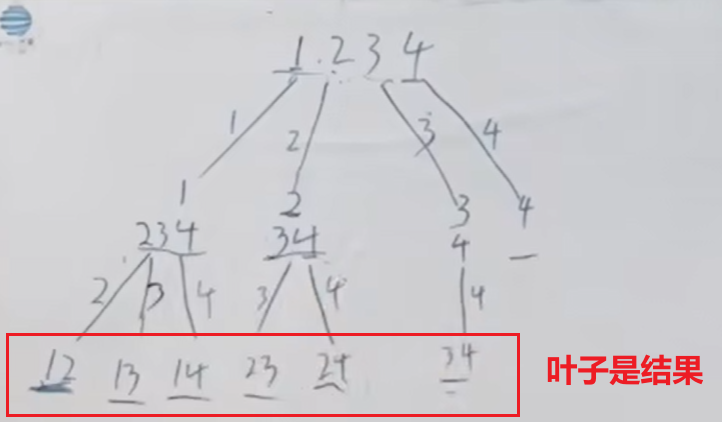 1 2 3 4
1 2 3 4
1 2 3 4
234 34 4
2 3 4 3 4 4
12 13 14 23 24 34
叶子是结果